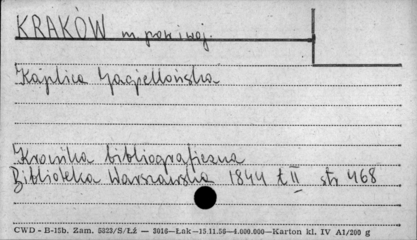 KRAKÓW m. pow. i woj.
Kaplica Jagiellońska
Kronika bibliograficzna
Biblioteka Warszawska 1844 t. II str. 468
CWD - B-15b. Zam. 5323/S/Łż — 3016—Łok—15.11.50—4.000.000—Karton kl. IV A1/200 g